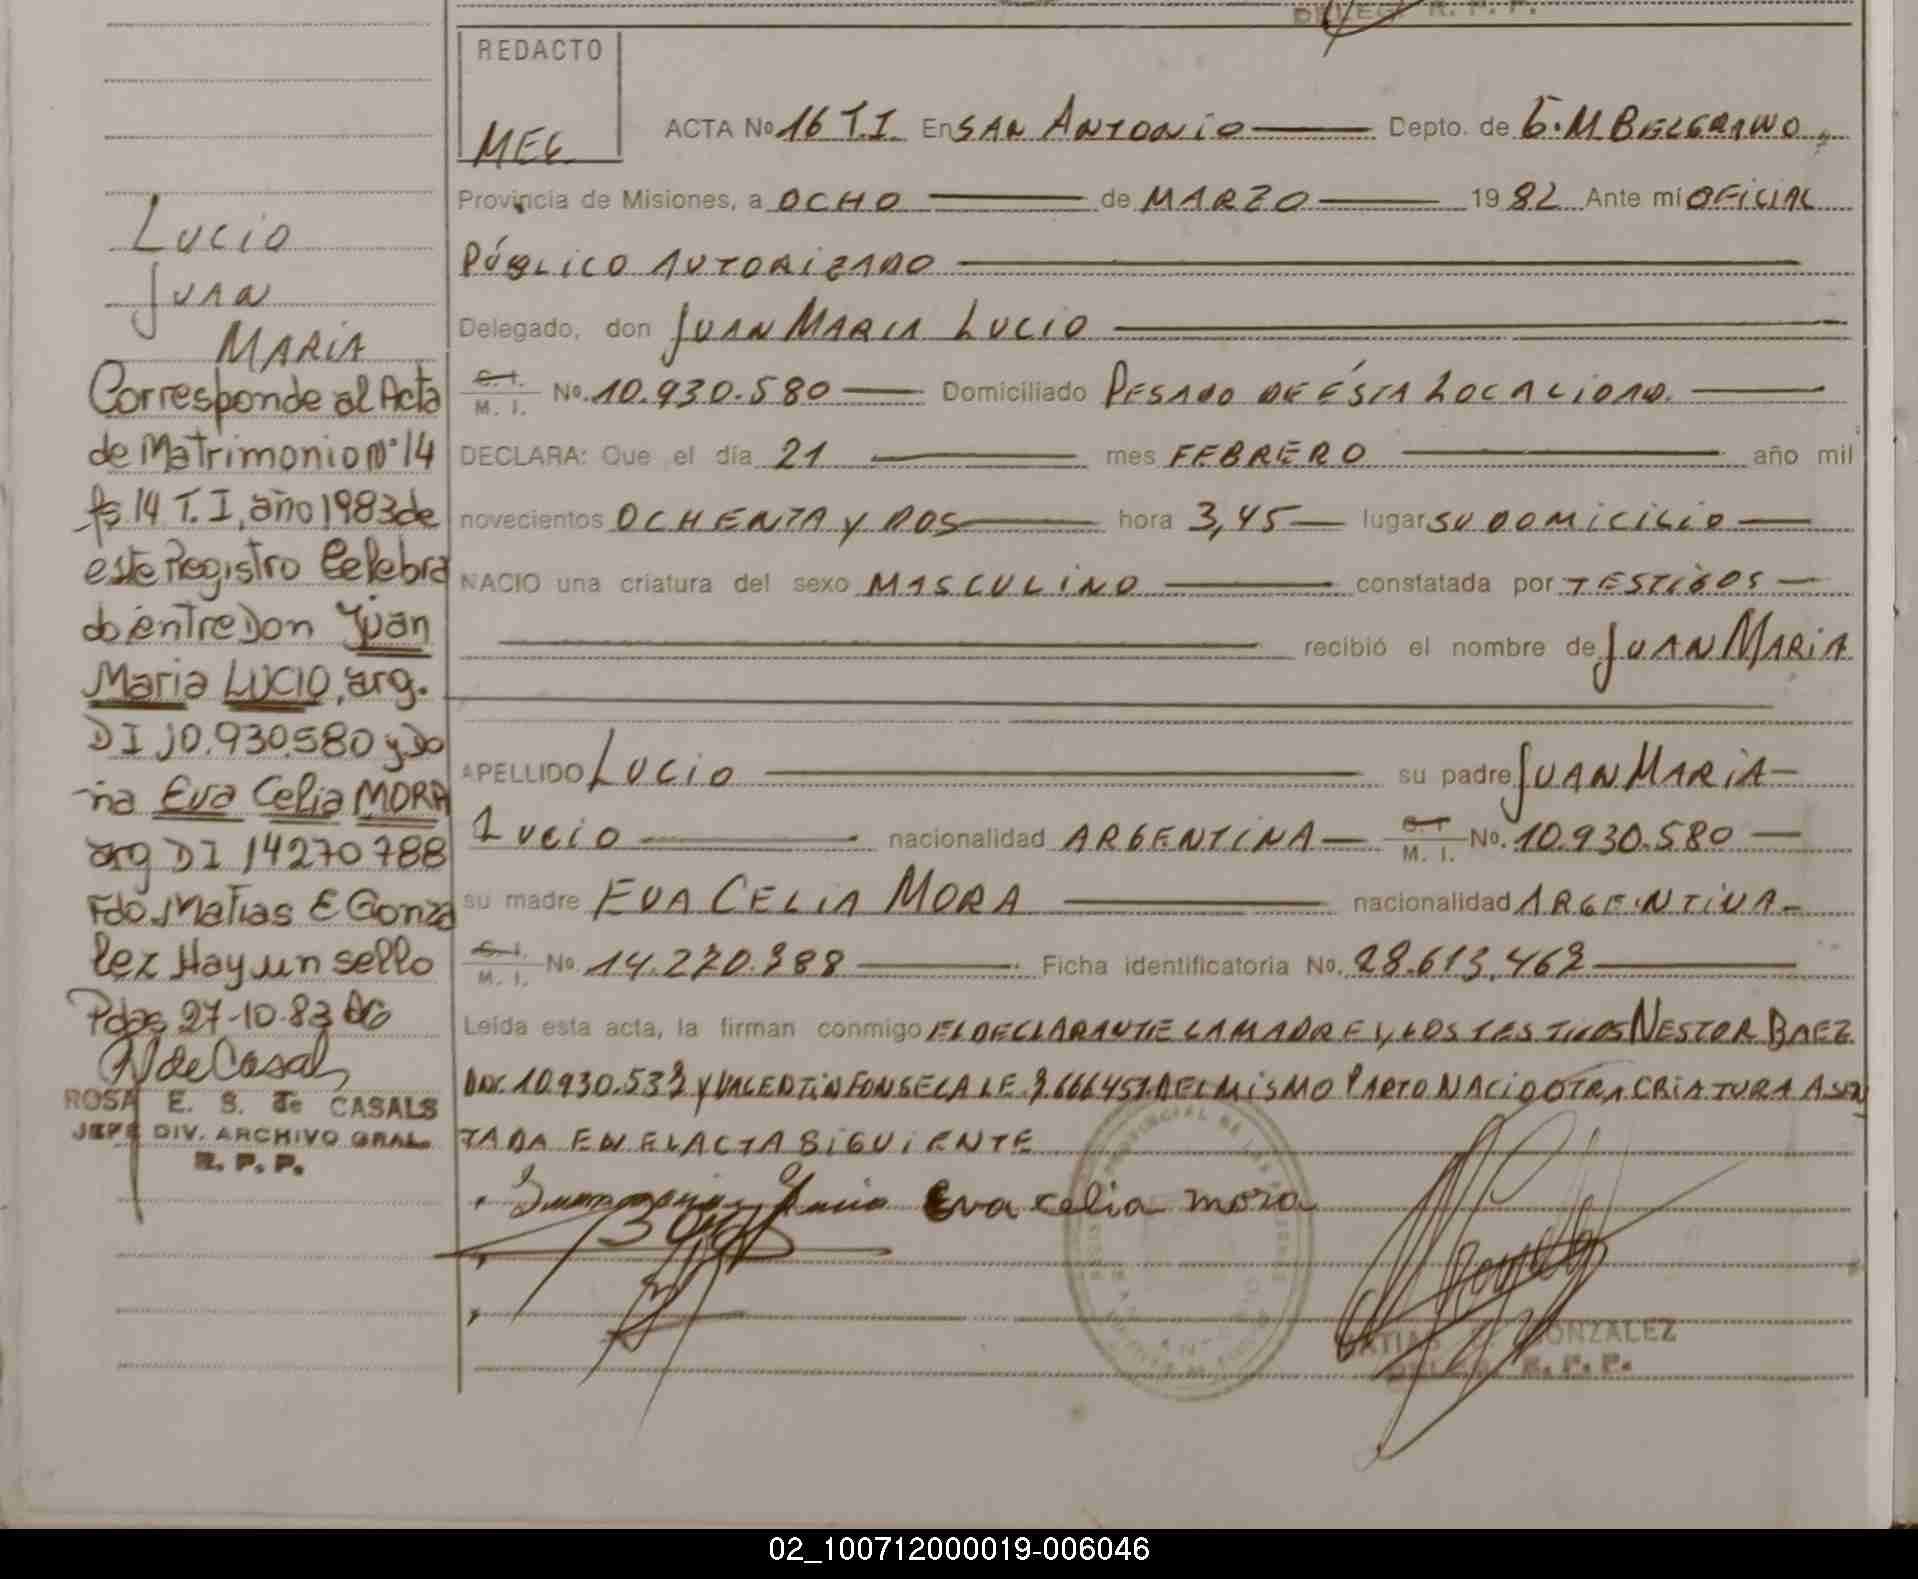 DELEG. R. P. P.
REDACTO
MEG
ACTA No 16 T.I. En SAN ANTONIO Depto. de G. M BELGRANO,
Provincia de Misiones, a OCHO de MARZO 1982 Ante mí OFICIAL
PÚBLICO AUTORIZADO
Delegado, don JUAN MARIA LUCIO
C. I.
M. I. No. 10.930.580 Domiciliado PESADO DE ÉSTA LOCALIDAD.
DECLARA: Que el día 21 mes FEBRERO año mil
novecientos OCHENTA y DOS hora 3,45 lugar SU DOMICILIO
NACIO una criatura del sexo MASCULINO constatada por TESTIGOS
recibió el nombre de JUAN MARIA
APELLIDO LUCIO su padre JUAN MARIA
LUCIO nacionalidad ARGENTINA C. I.
M. I. No. 10.930.580
su madre EVA CELIA MORA nacionalidad ARGENTINA
C. I.
M. I. No. 14.270.788 Ficha identificatoria No. 28.613.467
Leída esta acta, la firman conmigo EL DECLARANTE LA MADRE Y LOS TESTIGOS NESTOR BAEZ
DNI. 10.930.537 Y VALENTIN FONSECA L.E. 7.666457 DEL MISMO PARTO NACIO OTRA CRIATURA ASEN
TADA EN EL ACTA SIGUIENTE
Juan maria Lucio Eva celia mora
MATIAS E. GONZALEZ
DELEG. R. P. P.
LUCIO
JUAN
MARIA
Corresponde al Acta
de Matrimonio Nº 14
fs 14 T. I, año 1983 de
este Registro Celebra
do entre Don Juan
Maria LUCIO, arg.
DI 10.930.580 y Do
ña Eva Celia MORA
arg DI 14270788
Fdo. Matias E Gonza
lez Hay un sello
Pdas 27-10-83
N de Casals
ROSA E. S. de CASALS
JEFE DIV. ARCHIVO GRAL.
R. P. P.
02_100712000019-006046